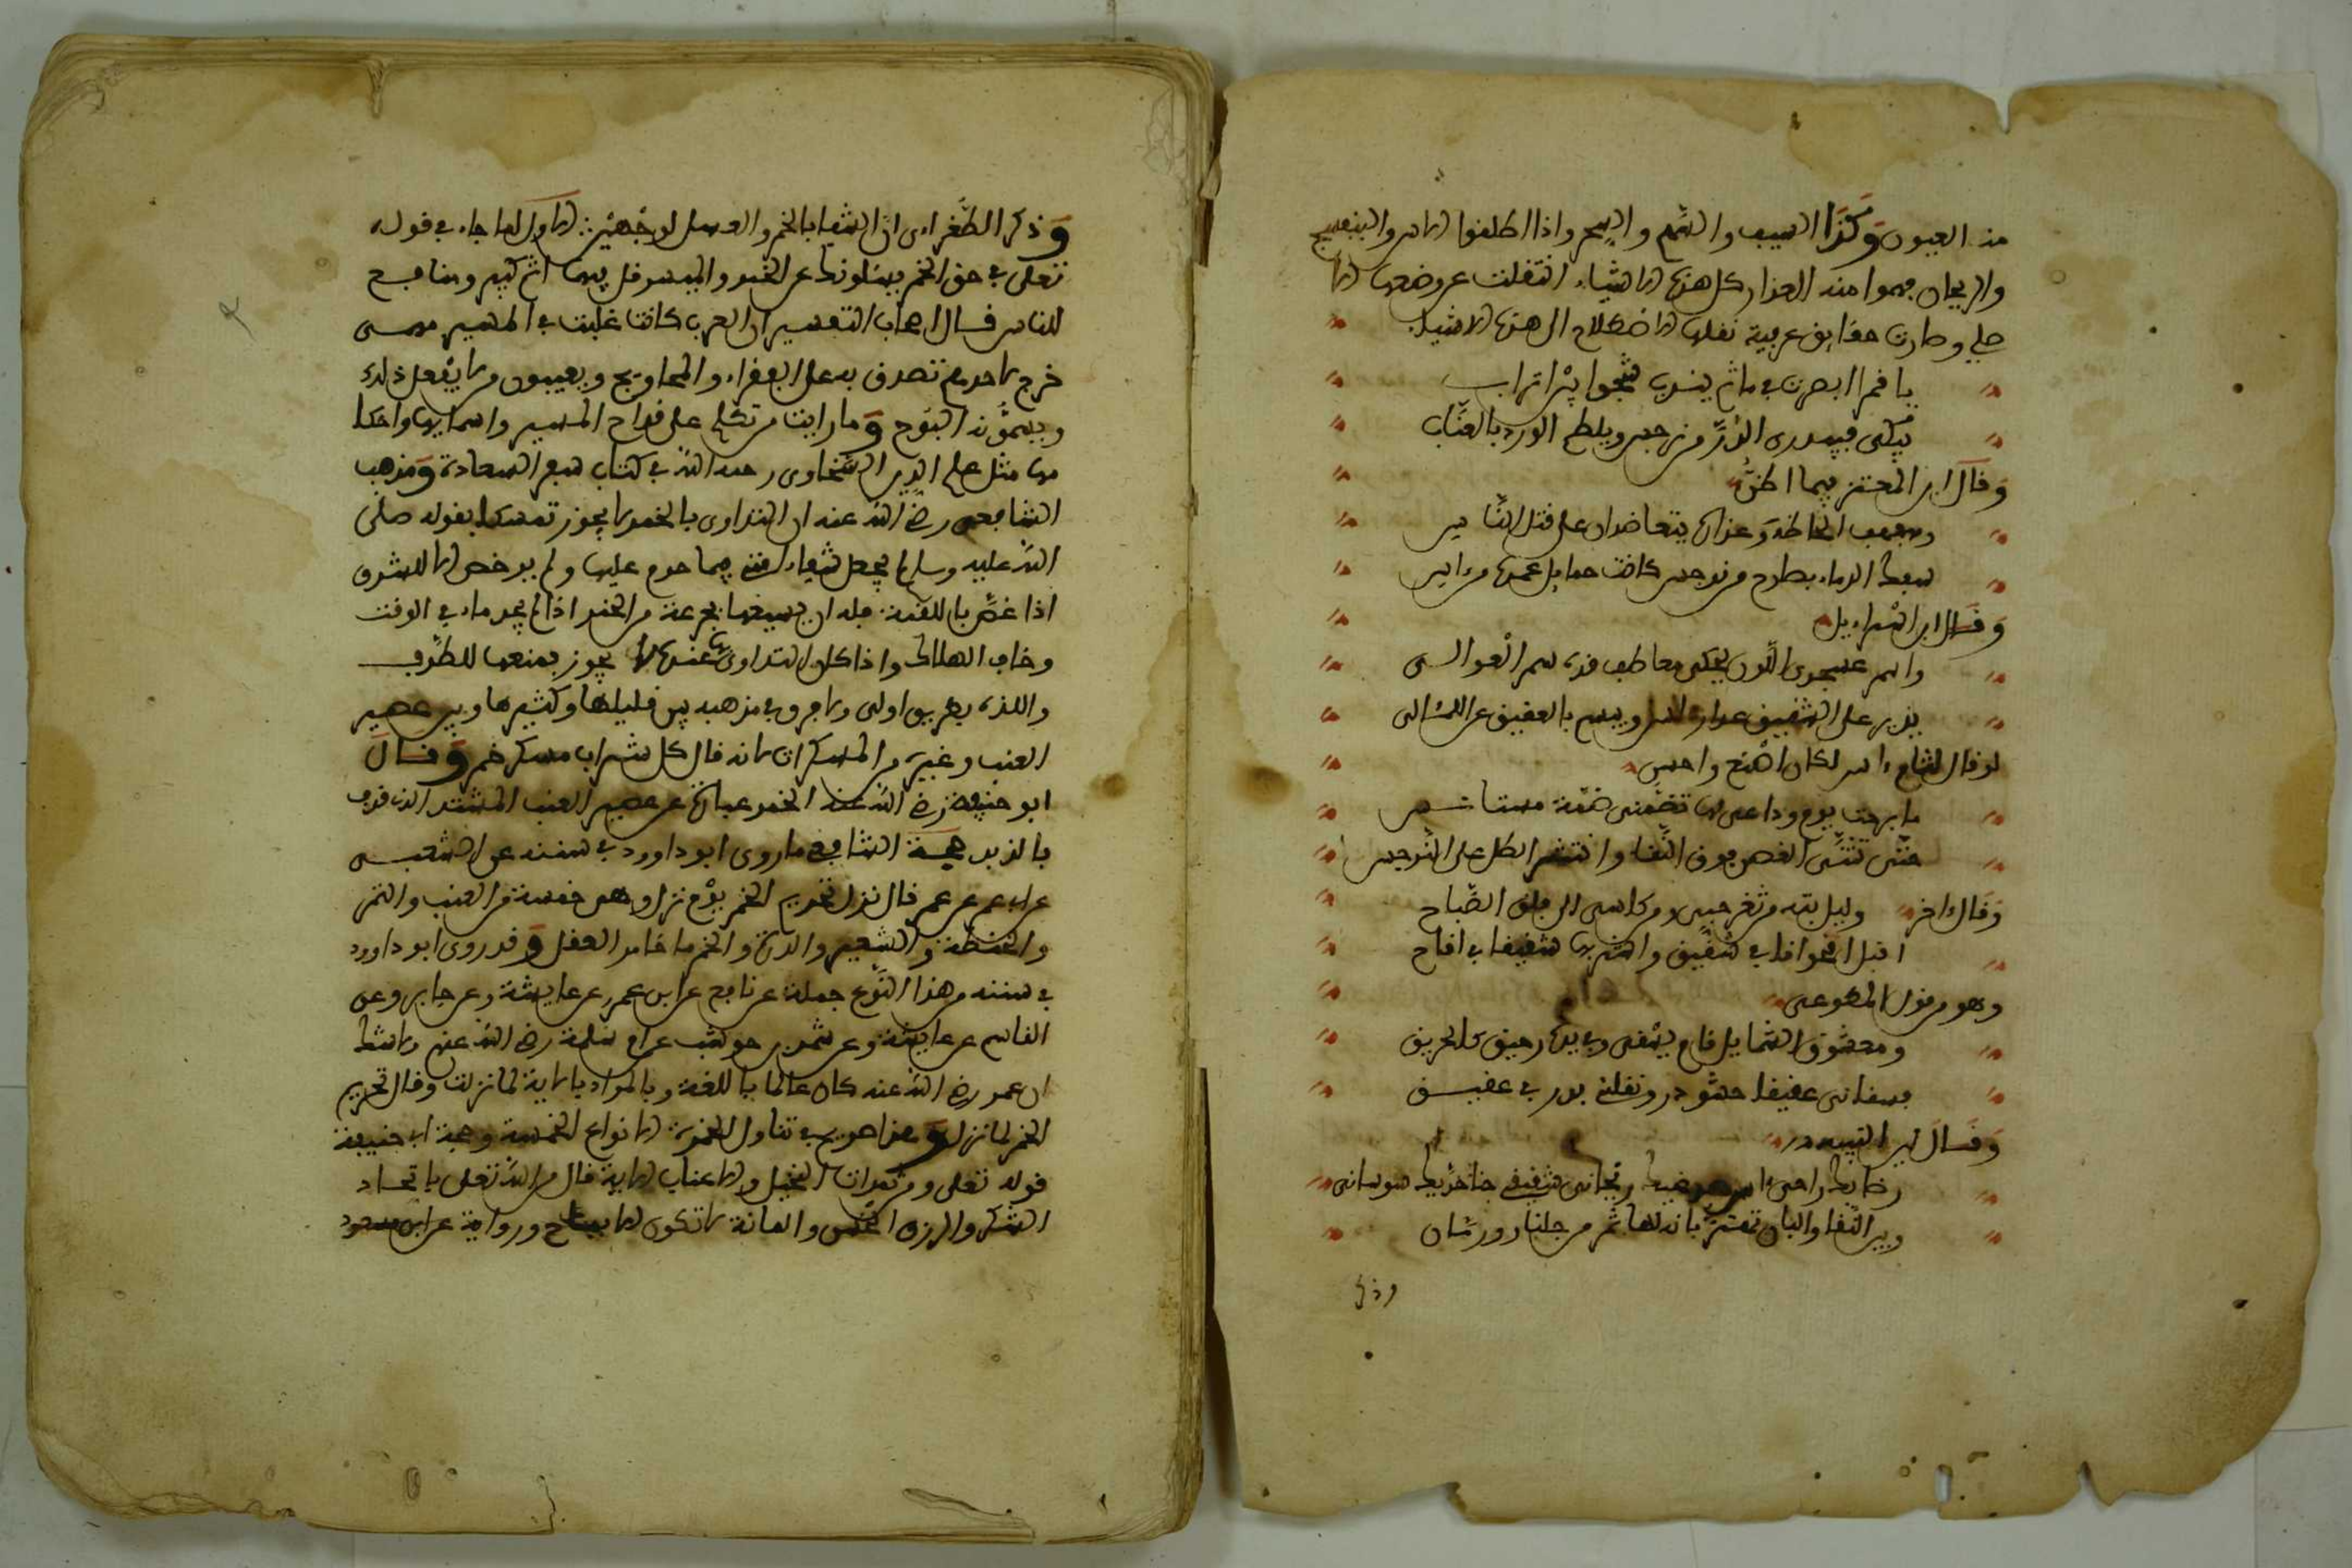 منه العيون وكذا السيف والسهم والسحر واذا اطلقوا الاس والبنفسج
والريحان فهموا منه العذار كل هذه الاشياء انتقلت عن وضعها الا
صلي وصارت حقايق عربية نقلها الاصطلاح الى هذه الاشياء
يا قمرا ابصرت في ماتم يندب شجوا بين اتراب
يبكي فيذري الدر من نرجس ويلطم الورد بالعناب
وقال ابن المعتز فيما اظن
وسفك الدماء بصارم من نرجس كانت حمايل غمده من اس
وقال ابن اسراءيل
واسمر عسجدي اللون يحكي معاطف قده سمر العوالي
يدير على الشقيق عذار اس ويبسم بالعقيق عن اللئالي
لو قال لثام اس لكان اصنع واحسن
ما برحت يوم وداعي لها تضمني ضمة مستانس
حتى تثنى الغصن فوق النقا وانتثر الطل على النرجس
وقال اخر وليل بته من ثغر حبي ومن كاسي الى فلق الصباح
اقبل اقحوانا في شقيق واشربها شقيقا في اقاح
وهو من قول المطوعي
ومعشوق الشمايل قام يسعى وفي يده رحيق كالحريق
فسقاني عقيقا حشو در ونقلني بدر في عقيق
وقال ابن النبيه
رضابك راحي اس صدغيك ريحاني شقيقي جنا خديك سوساني
وبين النقا والبان تهتز بانة لها ثمر من جلنار ورمان
وذكر
وذكر الطغراءي ان الشفا بالخمر والعسل لوجهين الاول لما جاء في قوله
تعلى في حق الخمر يسئلونك عن الخمر والميسر قل فيهما اثم كبير ومنافع
للناس قال ارباب التفسير ان العرب كانت غلبت في الميسر فمتى
خرج لاحدهم تصدق به على الفقراء والمحاويج ويعيبون من لا يفعل ذلك
ويسمونه وما رايت من تكلم على قداح الميسر واسمايها واحكا
مها مثل علم الدين السخاوي رحمه الله في كتاب سفر السعادة ومذهب
الشافعي رضي الله عنه ان التداوي بالخمر لا يجوز تمسكا بقوله صلى
الله عليه وسلم لم يجعل شفاء امتي فيما حرم عليها ولم يرخص الا للشرق
اذا غص باللقمة فله ان يسيغها بجرعة من الخمر اذا لم يجد ماء في الوقت
وخاف الهلاك واذا كان التداوي بها عنده لا يجوز فمنعها للطرب
واللذة بطريق اولى ولا فرق في مذهبه بين قليلها وكثيرها وبين عصير
العنب وغيره من المسكرات لانه قال كل شراب مسكر خمر وقال
ابو حنيفة رضي الله عنه الخمر عبارة عن عصير العنب المشتد الذي قذف
بالزبد حجة الشافعي ما روى ابو داوود في سننه عن الشعبي
عن ابن عمر عن عمر قال نزل تحريم الخمر يوم نزل وهي خمسة من العنب والتمر
والحنطة والشعير والذرة والخمر ما خامر العقل وقد روى ابو داوود
في سننه من هذا النوع جملة عن نافع عن ابن عمر وعن عايشة وعن جابر وعن
القاسم عن عايشة وعن شهر بن حوشب عن ام سلمة رضي الله عنهم ولا شك
ان عمر رضي الله عنه كان عالما باللغة وبالمراد بالاية لما نزلت وقال تحريم
الخمر لما نزل وهذا صريح في تناول الخمر الانواع الخمسة وحجة ابي حنيفة
قوله تعلى ومن ثمرات النخيل والاعناب الاية قال من الله تعلى باتخاد
السكر والرزق الحسن والمانة لا تكون الا بمباح ورواية عن ابن مسعود